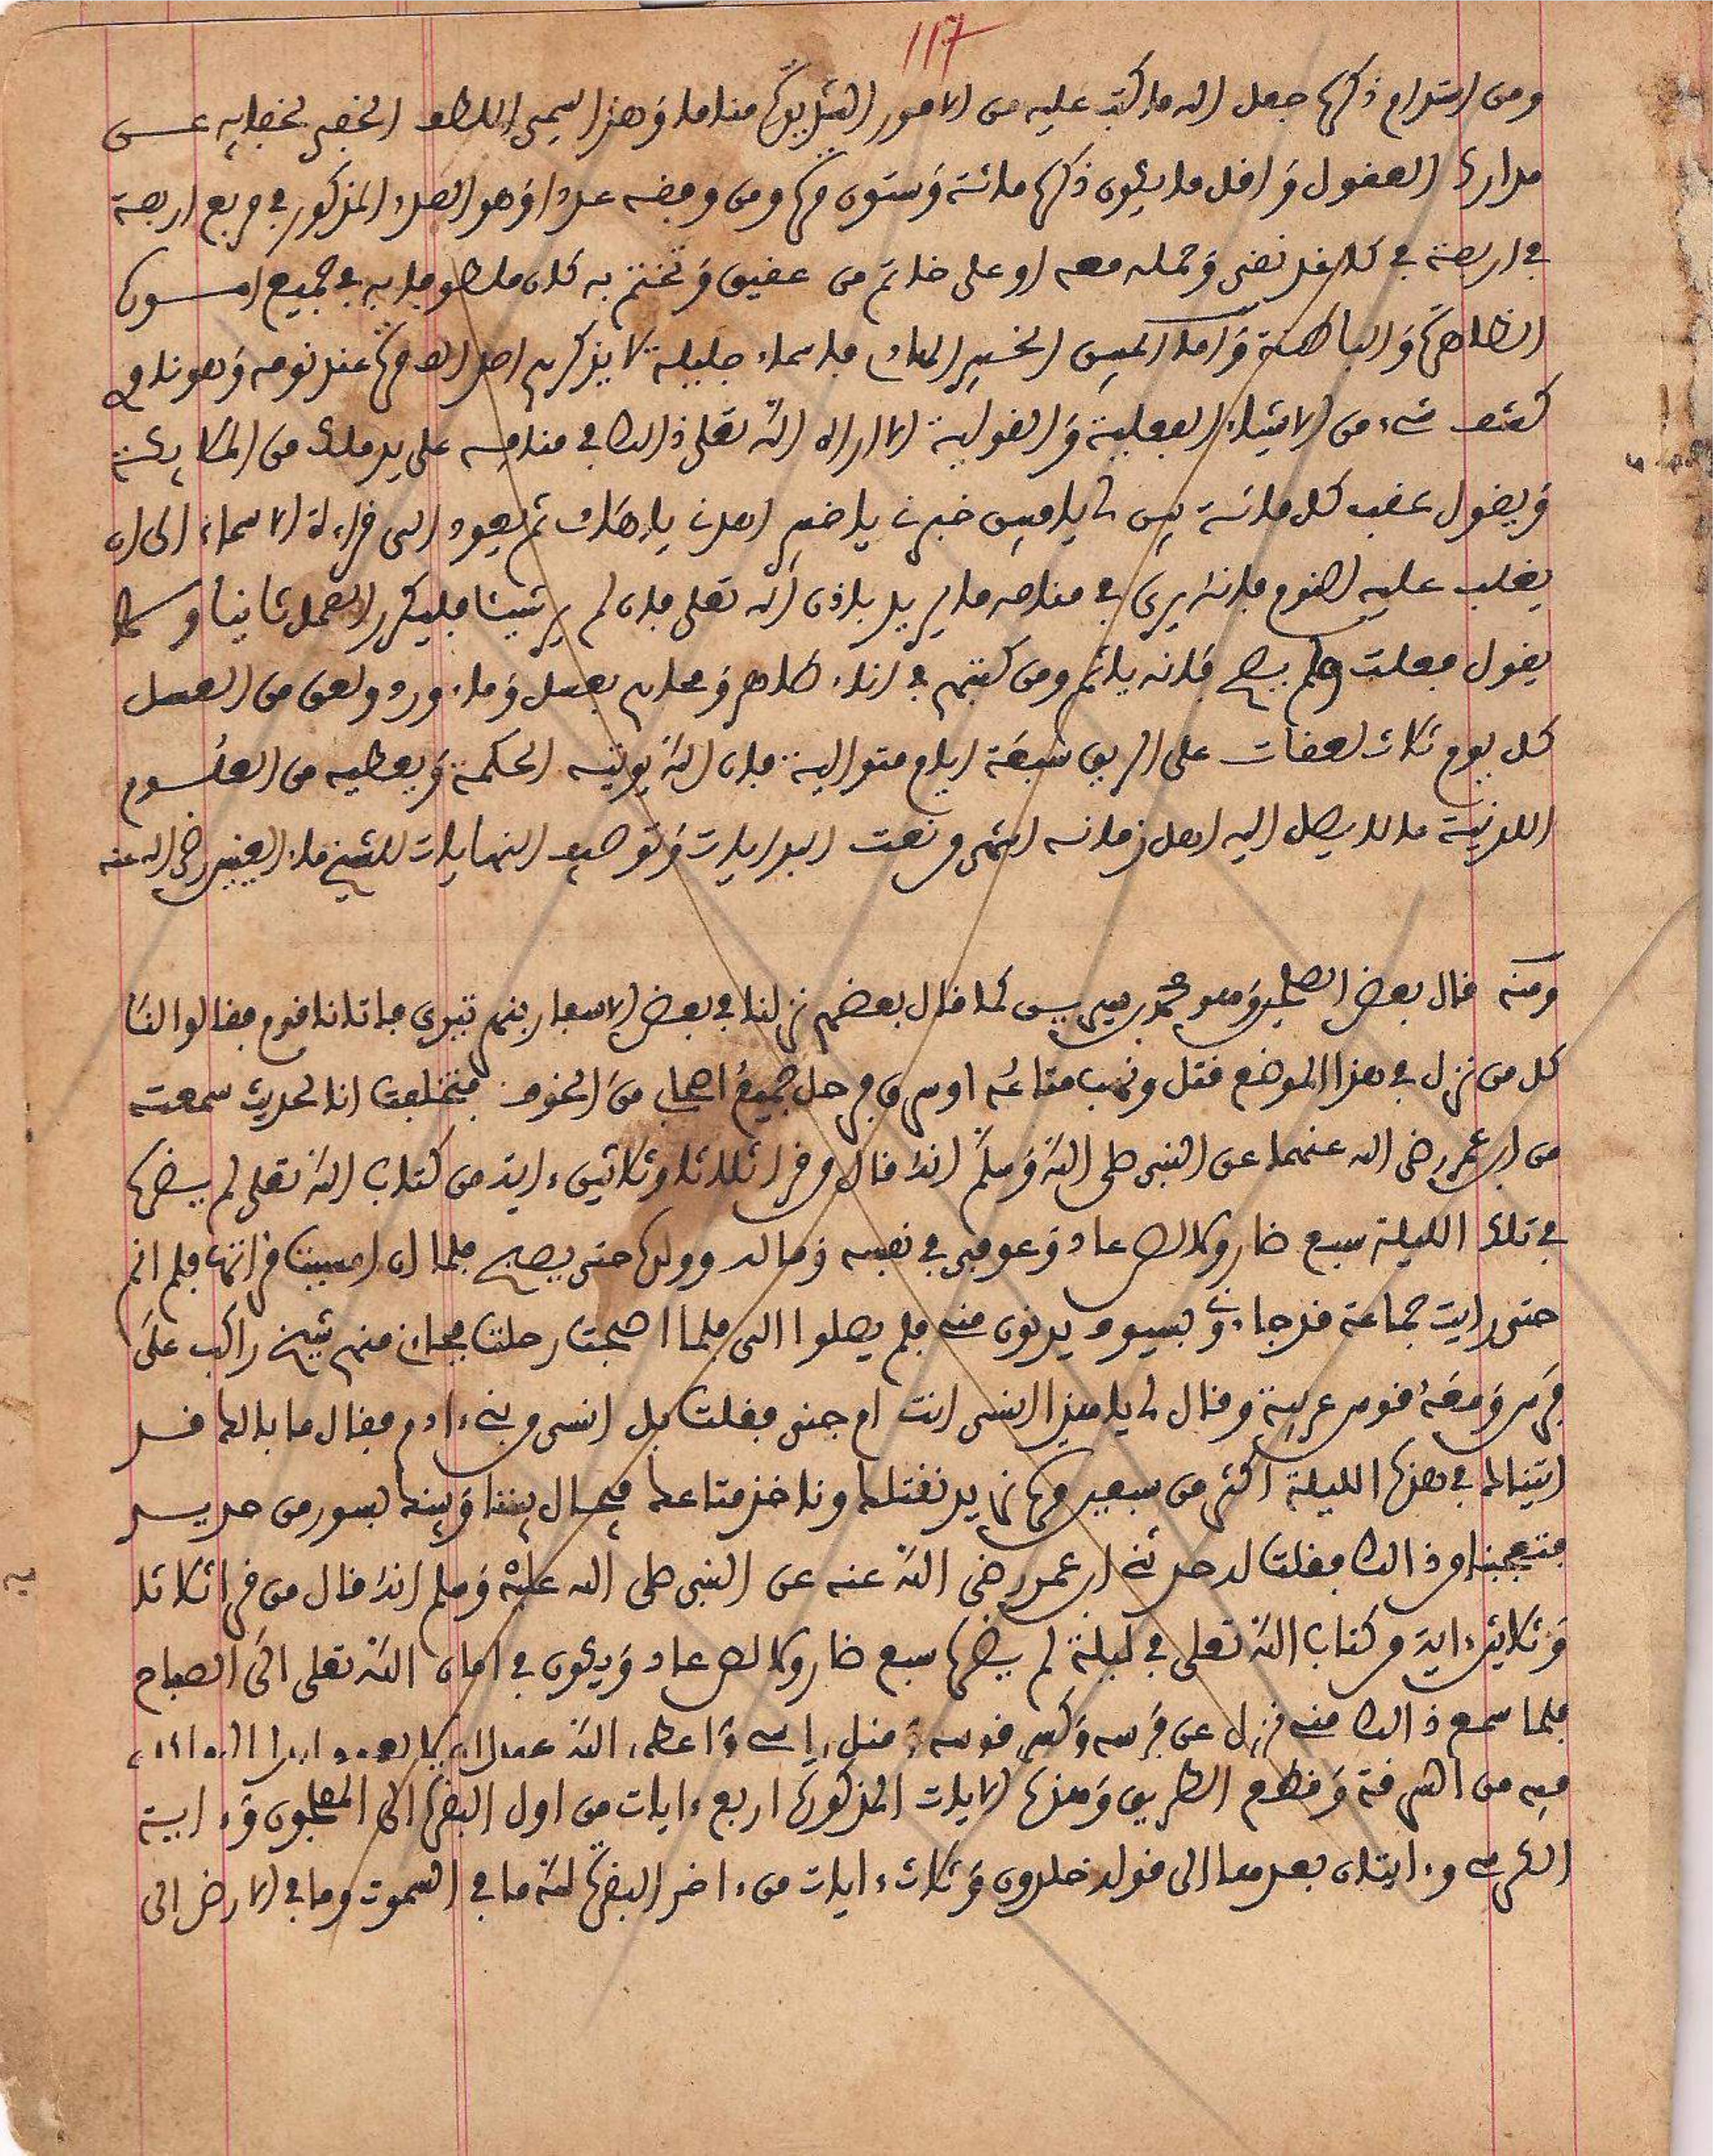 117
ومن استدام ذكرها جعل الله ما كتب عليه من الامور الشديدة مناما وهذا سمي اللطف الخفي لخفايه عن
مدارك العقول واقل ما يكون ذكرها مائة وستون مرة ومن وضعه عددا وهو العدد المذكور في مربع اربعة
في اربعة في كاغد نقي وحمله معه او على خاتم من عقيق وتختم به كان ملطوفا به في جميع اموره
الظاهرة والباطنة واما المبين الخبير الهادي فاسماء جليلة لا يذكرهم احد الف مرة عند نومه وهو ناو
كشف شيء من الاشياء الفعلية والقولية الا اراه الله تعلى ذالك في منامه على يد ملك من الملايكة
ويقول عقب كل مائة بين لي يا مبين خبرني يا خبير اهدني يا هادي ثم يعود الى قراءة الاسماء الى ان
يغلب عليه النوم فانه يرى في منامه ما يريد باذن الله تعلى فان لم ير شيئا فليكرر العمل ثانيا ولا
يقول فعلت ولم يصح فانه ياثم ومن كتبهم في اناء طاهر ومحاهم بعسل وماء ورد ولعق من العسل
كل يوم ثلاث لعقات على الريق سبعة ايام متوالية فان الله يوتيه الحكمة ويعطيه من العلوم
اللدنية ما لا يصل اليه اهل زمانه انتهى من نعت البدايات وتوصيف النهايات للشيخ ماء العينين رضي الله عنه
ومنه قال بعض الصالحين وهو محمد بن سيرين كما قال بعضهم نزلنا في بعض الاسفار بنهر تيرى فاتانا قوم فقالوا لنا
كل من نزل في هذا الموضع قتل ونهب متاعه او سرق فرحل جميع اصحابي من الخوف فتخلفت انا لحديث سمعته
من ابن عمر رضي الله عنهما عن النبي صلى الله وسلم انه قال من قرا ثلاثا وثلاثين ءاية من كتاب الله تعلى لم يضره
في تلك الليلة سبع ضار ولا لص عاد وعوفي في نفسه وماله وولده حتى يصبح فلما ان امسيت قراتها فلم انم
حتى رايت جماعة قد جاءوا بسيوف يدنون مني فلم يصلوا الي فلما اصبحت رحلت فجاءني منهم شيخ راكب على
فرس ومعه قوس عربية وقال لي يا هذا انسي انت ام جني فقلت بل انسي من بني ءادم فقال ما بالك قد
اتيناك في هذه الليلة اكثر من سبعين مرة نريد نقتلك وناخذ متاعك فيحال بيننا وبينك بسور من حديد
فتعجبنا من ذالك فقلت له حدثني ابن عمر رضي الله عنه عن النبي صلى الله عليه وسلم انه قال من قرا ثلاثا
وثلاثين ءاية من كتاب الله تعلى في ليلة لم يضره سبع ضار ولا لص عاد ويكون في امان الله تعلى الى الصباح
فلما سمع ذالك منه نزل عن فرسه وكسر قوسه وقبل راسي واعطى الله عهدا ان لا يعود ابدا الى ما كان
فيه من السرقة وقطع الطريق وهذه الايات المذكورة اربع ءايات من اول البقرة الى المفلحون وءاية
الكرسي وءايتان بعدها الى قوله خلدون وثلاث ءايات من ءاخر البقرة لله ما في السموت وما في الارض الى